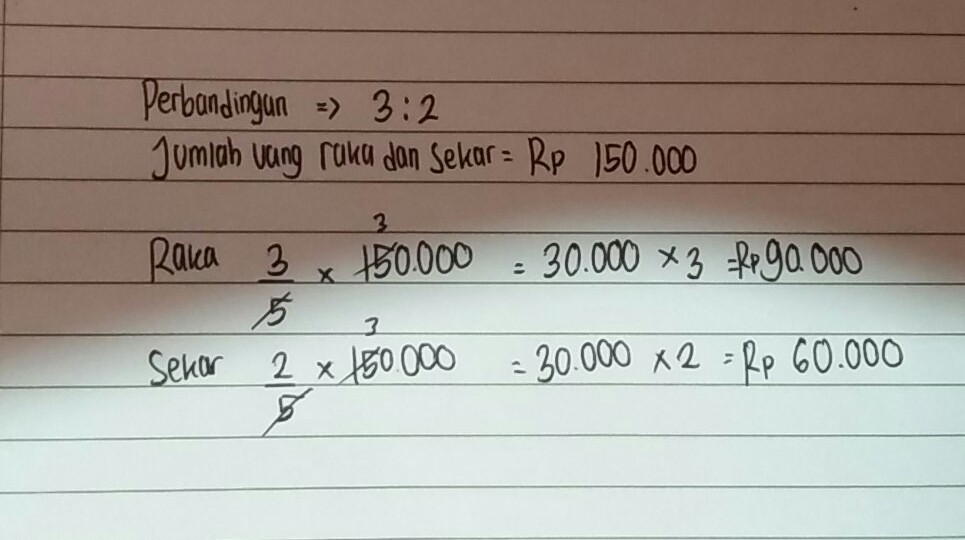 Perbandingan => 3:2
Jumlah uang raka dan Sekar = Rp 150.000
3
Raka 3/5 × 150.000 = 30.000 × 3 = Rp 90.000
3
Sekar 2/5 × 150.000 = 30.000 × 2 = Rp 60.000